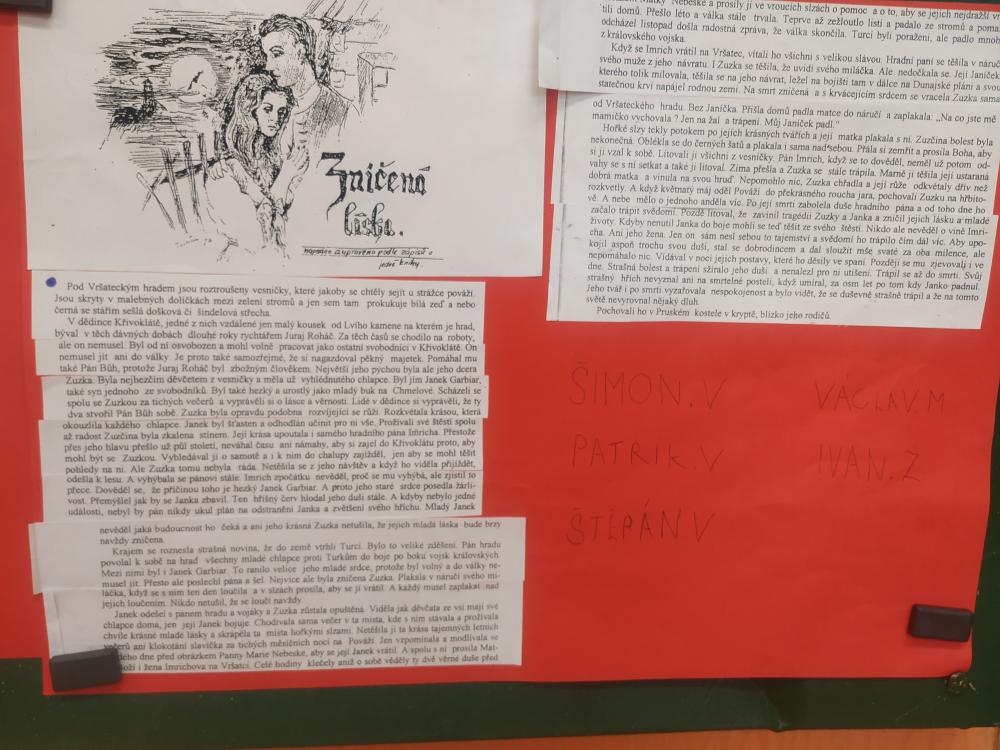 Zničená
láska.
napsáno a upraveno podle zápisů z
jedné knihy.
Pod Vršateckým hradem jsou roztroušeny vesničky, které jakoby se chtěly sejít u strážce pováží.
Jsou skryty v malebných doličkách mezi zelení stromů a jen sem tam prokukuje bílá zeď a nebo
černá se stářím sešlá došková či šindelová střecha.
V dědince Křivoklátě, jedné z nich vzdálené jen malý kousek od Lvího kamene na kterém je hrad,
býval v těch dávných dobách dlouhé roky rychtářem Juraj Roháč. Za těch časů se chodilo na roboty,
ale on nemusel. Byl od ní osvobozen a mohl volně pracovat jako ostatní svobodníci v Křivoklátě. On
nemusel jít ani do války. Je proto také samozřejmé, že si nagazdoval pěkný majetek. Pomáhal mu
také Pán Bůh, protože Juraj Roháč byl zbožným člověkem. Největší jeho pýchou byla ale jeho dcera
Zuzka. Byla nejhezčím děvčetem z vesničky a měla už vyhlédnutého chlapce. Byl jím Janek Garbiar,
také syn jednoho ze svobodníků. Byl také hezký a urostlý jako mladý buk na Chmelové. Scházeli se
spolu se Zuzkou za tichých večerů a vyprávěli si o lásce a věrnosti. Lidé v dědince si vyprávěli, že ty
dva stvořil Pán Bůh sobě. Zuzka byla opravdu podobna rozvíjející se růži. Rozkvétala krásou, která
okouzlila každého chlapce. Janek byl šťasten a odhodlán učinit pro ni vše. Prožívali své štěstí spolu
až radost Zuzčina byla zkalena stínem. Její krása upoutala i samého hradního pána Imricha. Přestože
přes jeho hlavu přešlo už půl století, neváhal času ani námahy, aby si zajel do Křivoklátu proto, aby
mohl být se Zuzkou. Vyhledával jí o samotě a i k nim do chalupy zajížděl, jen aby se mohl těšit
pohledy na ni. Ale Zuzka tomu nebyla ráda. Netěšila se z jeho návštěv a když ho viděla přijíždět,
odešla k lesu. A vyhýbala se pánovi stále. Imrich zpočátku nevěděl, proč se mu vyhýbá, ale zjistil to
přece. Dověděl se, že příčinou toho je hezký Janek Garbiar. A proto jeho staré srdce posedla žárli-
vost. Přemýšlel jak by se Janka zbavil. Ten hříšný červ hlodal jeho duši stále. A kdyby nebylo jedné
události, nebyl by pán nikdy ukul plán na odstranění Janka a zvětšení svého hříchu. Mladý Janek
nevěděl jaká budoucnost ho čeká a ani jeho krásná Zuzka netušila, že jejich mladá láska bude brzy
navždy zničena.
Krajem se roznesla strašná novina, že do země vtrhli Turci. Bylo to veliké zděšení. Pán hradu
povolal k sobě na hrad všechny mladé chlapce proti Turkům do boje po boku vojsk královských.
Mezi nimi byl i Janek Garbiar. To ranilo velice jeho mladé srdce, protože byl volný a do války ne-
musel jít. Přesto ale poslechl pána a šel. Nejvíce ale byla zničena Zuzka. Plakala v náručí svého mi-
láčka, když se s ním ten den loučila a v slzách prosila, aby se jí vrátil. A každý musel zaplakat nad
jejich loučením. Nikdo netušil, že se loučí navždy.
Janek odešel s pánem hradu a vojáky a Zuzka zůstala opuštěná. Viděla jak děvčata ze vsi mají své
chlapce doma, jen její Janek bojuje. Chodívala sama večer v ta místa, kde s ním stávala a prožívala
chvíle krásné mladé lásky a skrápěla ta místa hořkými slzami. Netěšila ji ta krása tajemných letních
večerů ani klokotání slavíčka za tichých měsíčních nocí na Pováží. Jen vzpomínala a modlívala se
dne před obrázkem Panny Marie Nebeské, aby se její Janek vrátil. A spolu s ní prosila Mat-
i žena Imrichova na Vršatci. Celé hodiny klečely aniž o sobě věděly ty dvě věrné duše před
Matky Nebeské a prosily ji ve vroucích slzách o pomoc a o to, aby se jejich nejdražší
tili domů. Přešlo léto a válka stále trvala. Teprve až zežloutlo listí a padalo ze stromů a
odcházel listopad došla radostná zpráva, že válka skončila. Turci byli poraženi, ale padlo
z královského vojska.
Když se Imrich vrátil na Vršatec, vítali ho všichni s velikou slávou. Hradní paní se těšila v
svého muže z jeho návratu. I Zuzka se těšila, že uvidí svého miláčka. Ale nedočkala se. Její
kterého tolik milovala, těšila se na jeho návrat, ležel na bojišti tam v dálce na Dunajské pláni a
statečnou krví napájel rodnou zemi. Na smrt zničená a s krvácejícím srdcem se vracela Zuzka
od Vršateckého hradu. Bez Janíčka. Přišla domů padla matce do náručí a zaplakala: „Na co jste mě
mamičko vychovala ? Jen na žal a trápení. Můj Janíček padl."
Hořké slzy tekly potokem po jejích krásných tvářích a její matka plakala s ní. Zuzčina bolest byla
nekonečná. Oblékla se do černých šatů a plakala i sama nad sebou. Přála si zemřít a prosila Boha, aby
si jí vzal k sobě. Litovali jí všichni z vesničky. Pán Imrich, když se to dověděl, neměl už potom od-
vahy se s ní setkat a také jí litoval. Zima přešla a Zuzka se stále trápila. Marně jí těšila její ustaraná
dobrá matka a vinula na svou hruď. Nepomohlo nic, Zuzka chřadla a její růže odkvétaly dřív než
rozkvetly. A když květnatý máj oděl Pováží do překrásného roucha jara, pochovali Zuzku na hřbito-
vě. A nebe mělo o jednoho anděla víc. Po její smrti zabolela duše hradního pána a od toho dne ho
začalo trápit svědomí. Pozdě litoval, že zavinil tragédii Zuzky a Janka a zničil jejich lásku a mladé
životy. Kdyby nenutil Janka do boje mohli se teď těšit ze svého štěstí. Nikdo ale nevěděl o vině Imri-
cha. Ani jeho žena. Jen on sám nesl sebou to tajemství a svědomí ho trápilo čím dál víc. Aby upo-
kojil aspoň trochu svou duši, stal se dobrodincem a dal sloužit mše svaté za oba milence, ale
nepomáhalo nic. Vídával v noci jejich postavy, které ho děsily ve spaní. Později se mu zjevovali i ve
dne. Strašná bolest a trápení sžíralo jeho duši a nenalezl pro ni utišení. Trápil se až do smrti. Svůj
strašný hřích nevyznal ani na smrtelné posteli, když umíral, za osm let po tom kdy Janko padnul.
Jeho tvář i po smrti vyzařovala nespokojenost a bylo vidět, že se duševně strašně trápil a že na tomto
světě nevyrovnal nějaký dluh.
Pochovali ho v Pruském kostele v kryptě, blízko jeho rodičů.
ŠIMON.V
VÁCLAV M
PATRIK.V
IVAN.Z
ŠTĚPÁN V